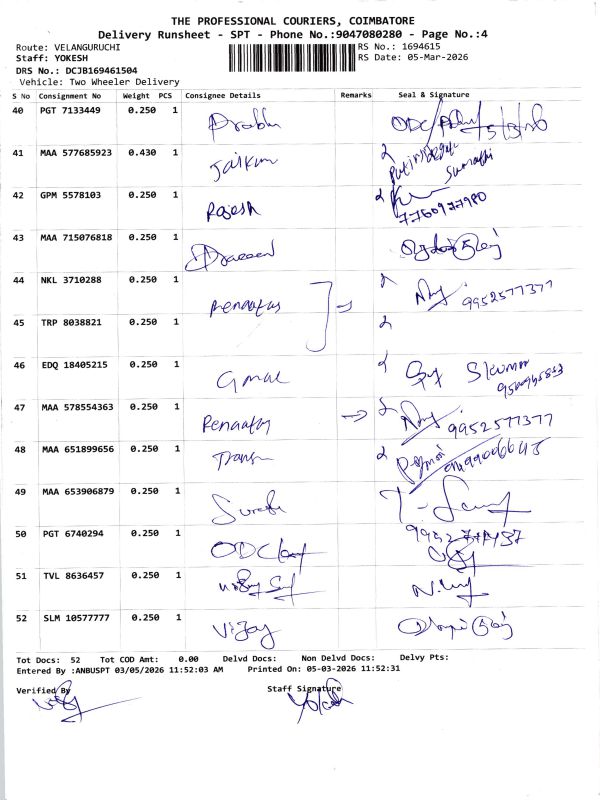 THE PROFESSIONAL COURIERS, COIMBATORE
Delivery Runsheet - SPT - Phone No.:9047080280 - Page No.:4
Route: VELANGURUCHI RS No.: 1694615
Staff: YOKESH RS Date: 05-Mar-2026
DRS No.: DCJB169461504
Vehicle: Two Wheeler Delivery
S No Consignment No Weight PCS Consignee Details Remarks Seal & Signature
40 PGT 7133449 0.250 1 Prabhu ODC/
41 MAA 577685923 0.430 1 Jaikum Sumathi
42 GPM 5578103 0.250 1 Rajesh 7760977980
43 MAA 715076818 0.250 1
44 NKL 3710288 0.250 1 Renaatus 9952577377
45 TRP 8038821 0.250 1
46 EDQ 18405215 0.250 1 Gmal S kumar
47 MAA 578554363 0.250 1 Renaatus 9952577377
48 MAA 651899656 0.250 1
49 MAA 653906879 0.250 1 Suresh
50 PGT 6740294 0.250 1 ODC
51 TVL 8636457 0.250 1
52 SLM 10577777 0.250 1 Vijay
Tot Docs: 52 Tot COD Amt: 0.00 Delvd Docs: Non Delvd Docs: Delvy Pts:
Entered By :ANBUSPT 03/05/2026 11:52:03 AM Printed On: 05-03-2026 11:52:31
Verified By Staff Signature